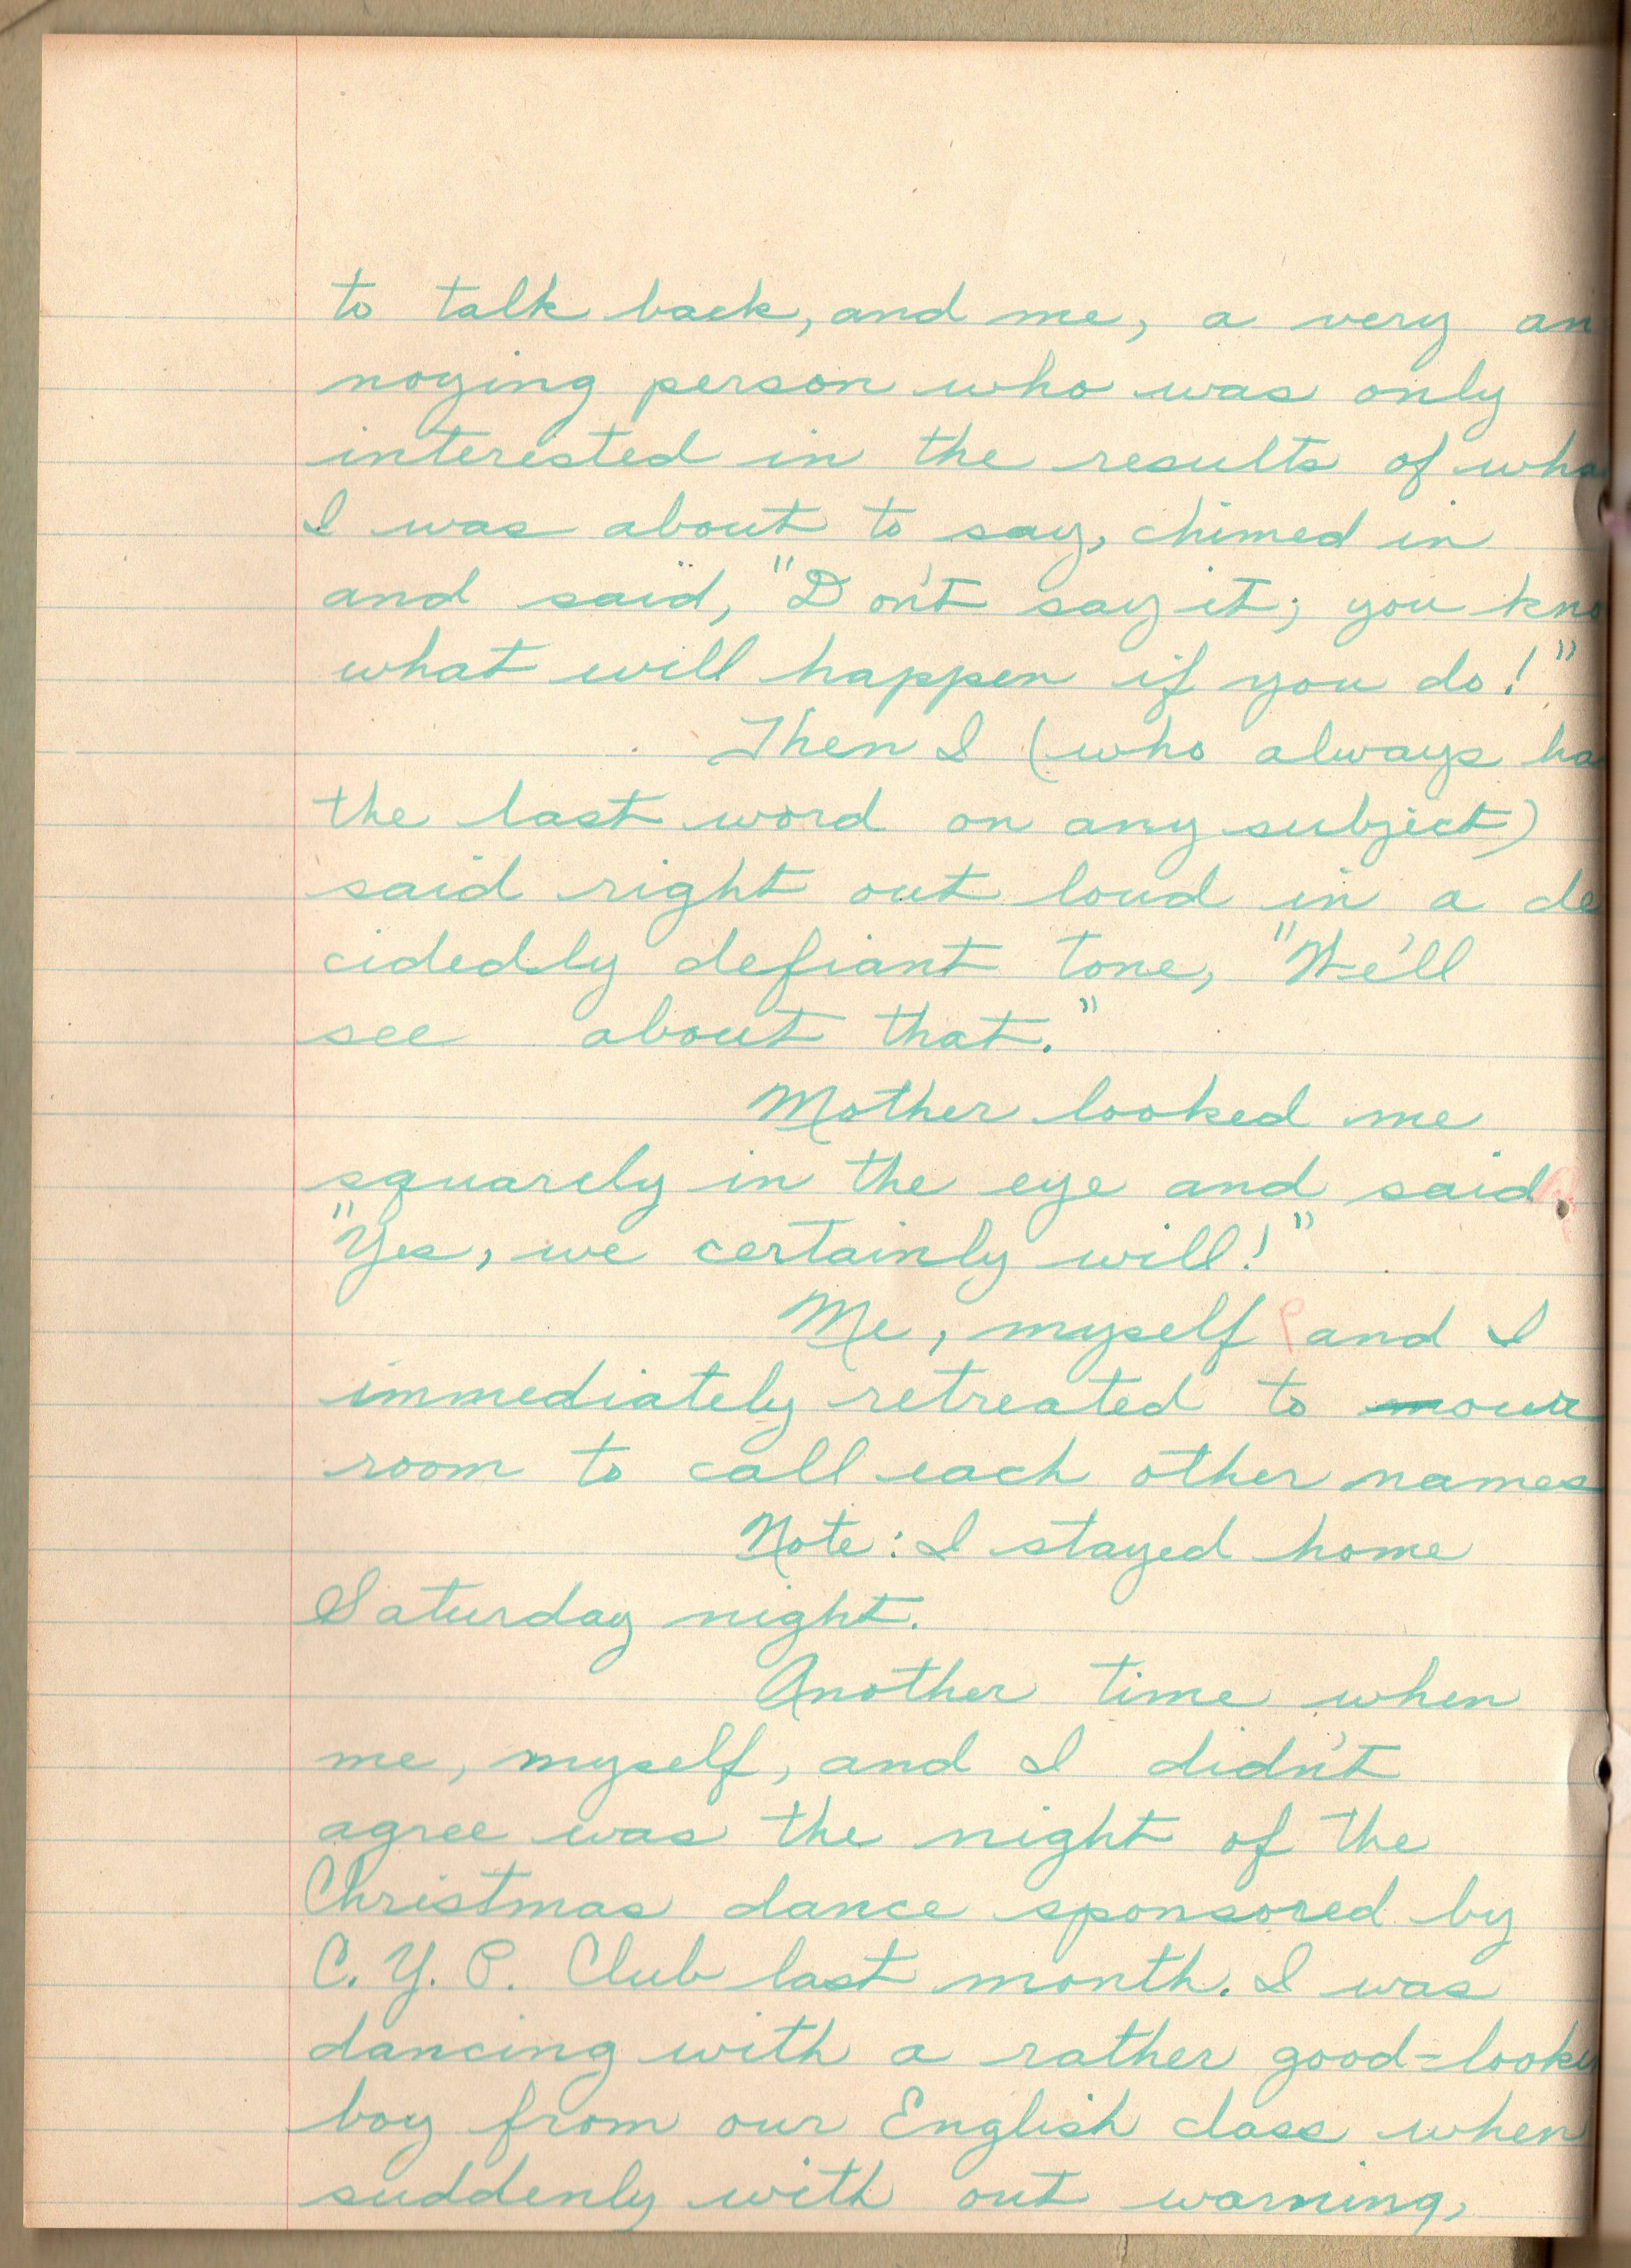 to talk back, and me, a very an
noying person who was only
interested in the results of wha
I was about to say, chimed in
and said, "Don't say it; you kno
what will happen if you do!"
Then I (who always ha
the last word on any subject)
said right out loud in a de
cidedly defiant tone, "We'll
see about that."
Mother looked me
squarely in the eye and said,
"Yes, we certainly will!"
Me, myself and I
immediately retreated to our
room to call each other names
Note: I stayed home
Saturday night.
Another time when
me, myself, and I didn't
agree was the night of the
Christmas dance sponsored by
C. Y. P. Club last month. I was
dancing with a rather good-looki
boy from our English class when
suddenly with out warning,